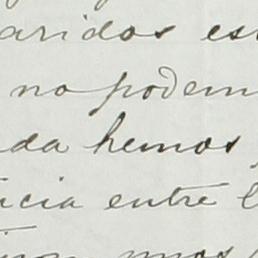 aridos es
no podem
da hemos
icia entre l
unos